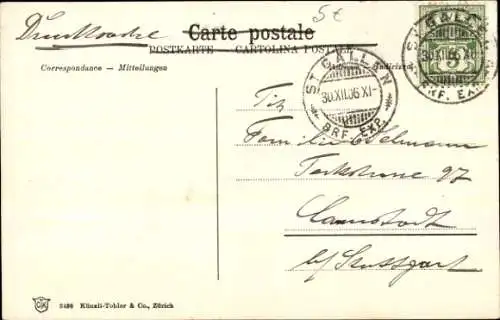 5c
Drucksache
Carte postale
POSTKARTE — CARTOLINA POSTALE
Correspondance — Mitteilungen
ST. GALLEN
30.XII.06.XI-
BRF. EXP.
ST. GALLEN
30.XII.06.XI-
BRF. EXP.
5
Tit
Familie
97
Cannstadt
b/ Stuttgart
CK
3496 Künzli-Tobler & Co., Zürich